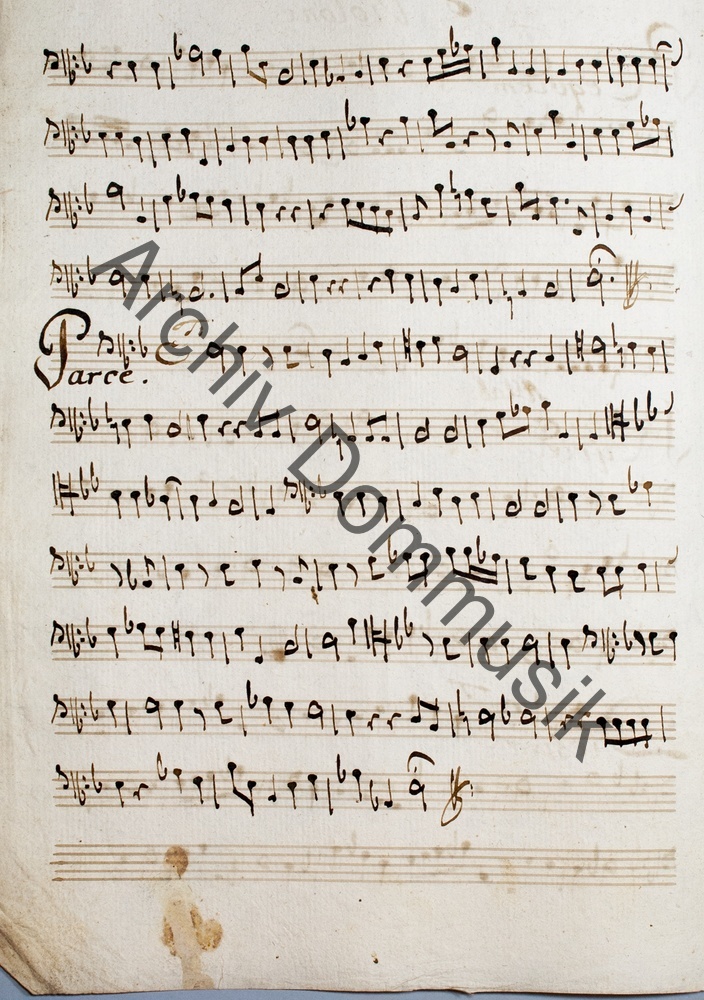 Parce.
Archiv Dommusik